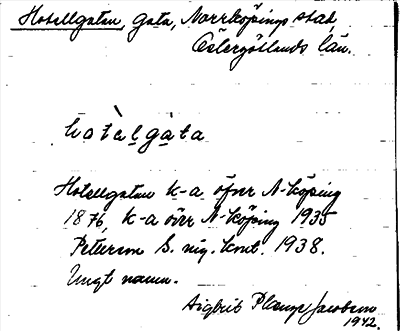 Hotellgatan, gata, Norrköpings stad,
Östergötlands län.
hotèlgàta
Hotellgatan k-a öfver N-köping
1876, k-a över N-köping 1935
Petterson S. nig. kmt. 1938.
Ungt namn.
Sigbrit Plænge Jacobson
1942.